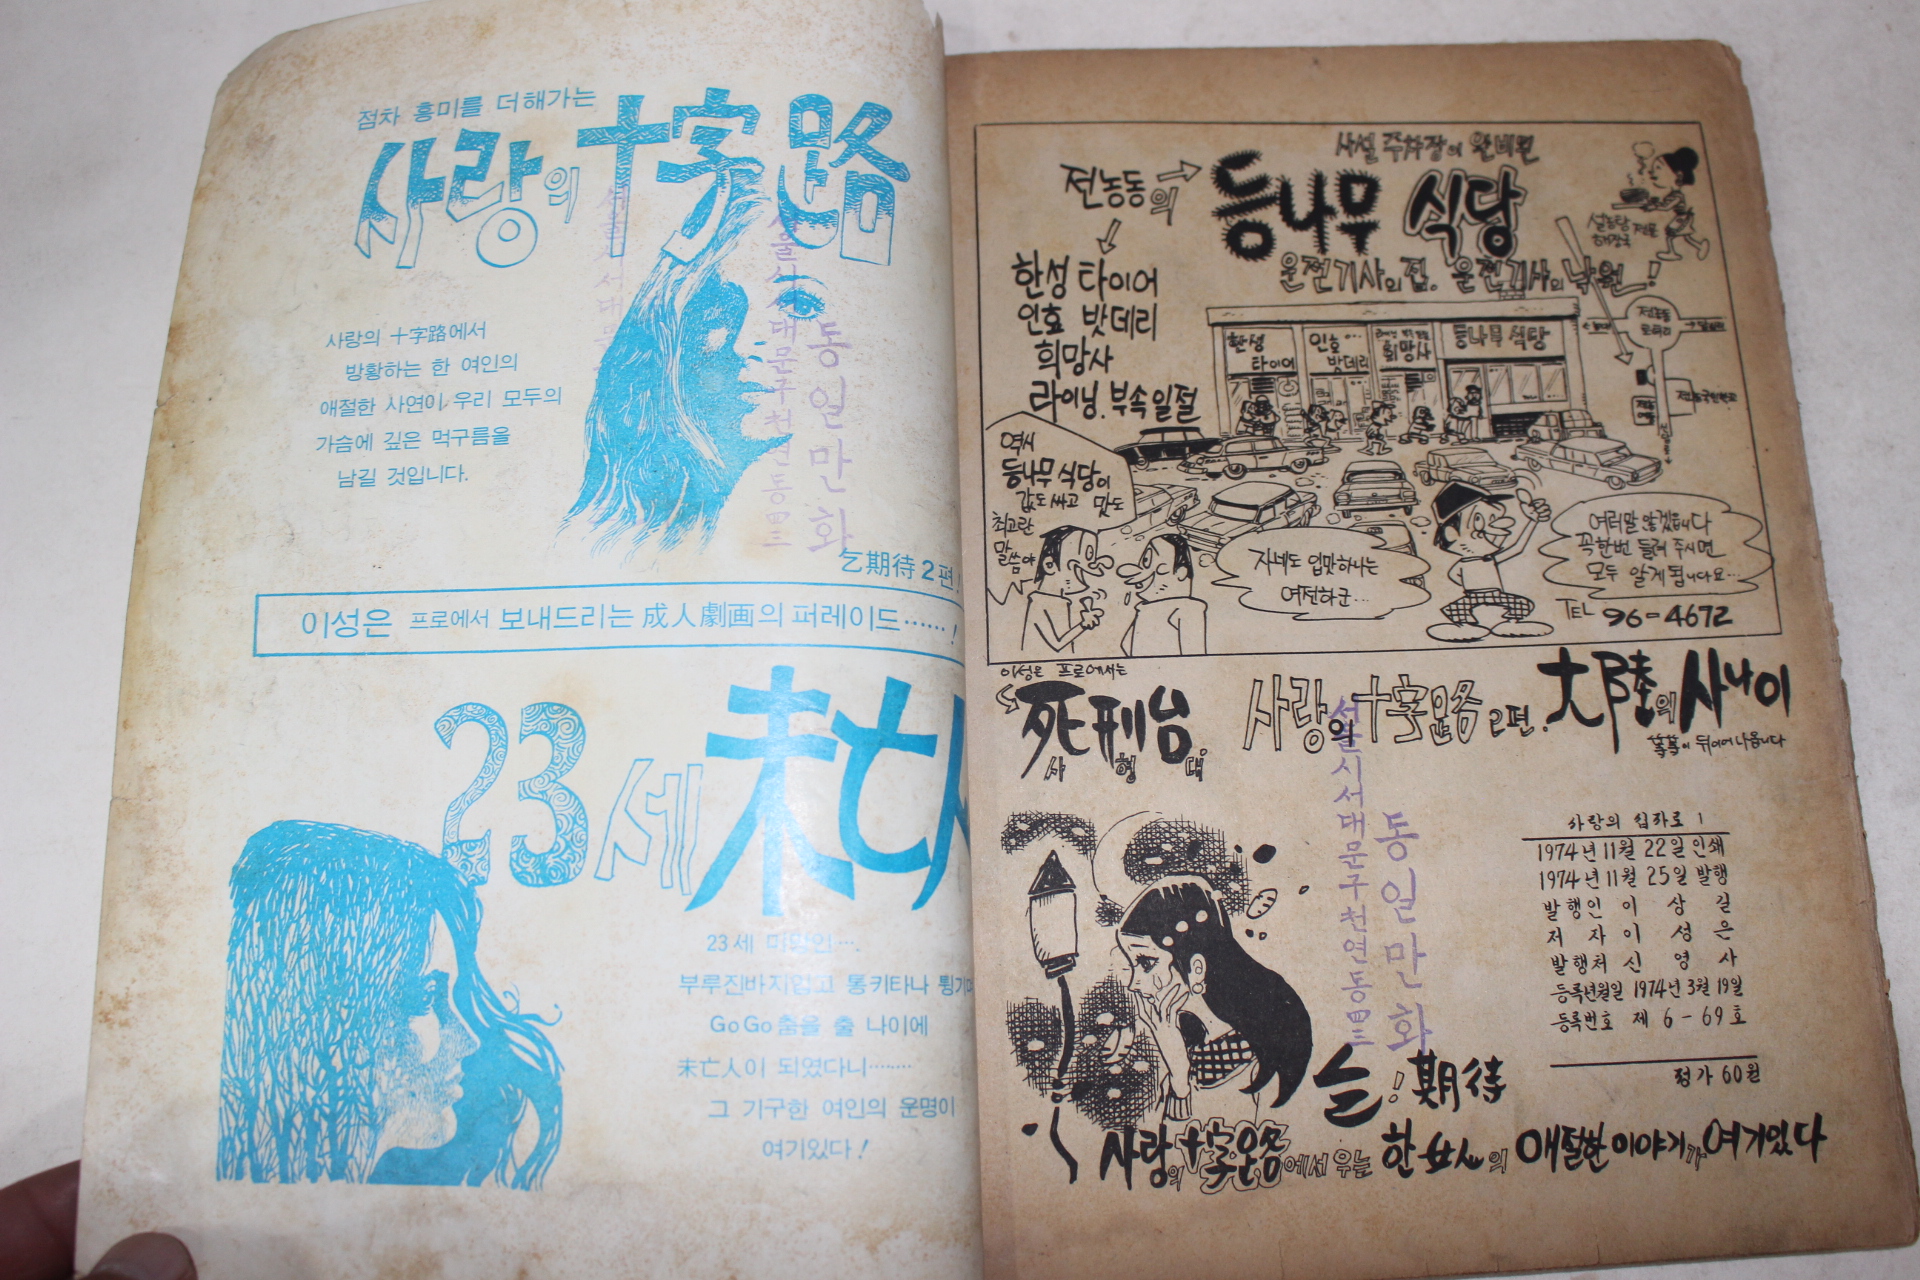 점차 흥미를 더해가는
사랑의 十字路
사랑의 十字路에서
방황하는 한 여인의
애절한 사연이 우리 모두의
가슴에 깊은 먹구름을
남길 것입니다.
乞期待 2편!
이성은 프로에서 보내드리는 成人劇画의 퍼레이드……!
23세 未亡人
23세 미망인….
부루진바지입고 통키타나 튕기며
GoGo춤을 출 나이에
未亡人이 되였다니………
그 기구한 여인의 운명이
여기있다!
서울시서대문구천연동
동일만화
사설 주차장이 완비된
전농동의
등나무 식당
운전기사의 집. 운전기사의 낙원!
설농탕 전문
해장국
한성 타이어
인효 밧데리
희망사
라이닝. 부속일절
한성 타이어
인효… 밧데리
희망사
등나무 식당
전농동 로타리
역시
등나무 식당이
값도 싸고 맛도
최고란
말씀야
자네도 입만하나는
여전하군…
여러말 않겠읍니다
꼭한번 들려 주시면
모두 알게 됩니다요…
TEL 96-4672
이성은 프로에서는
死刑台
사형대
사랑의 十字路 2편.
大陸의 사나이
等等이 뒤이어 나옵니다
서울시서대문구천연동
동일만화
사랑의 십자로 1
1974년 11월 22일 인쇄
1974년 11월 25일 발행
발행인 이 상 길
저 자 이 성 은
발행처 신 영 사
등록년월일 1974년 3월 19일
등록번호 제 6-69호
정가 60원
期待
사랑의 十字路에서 우는 한 女人의 애절한 이야기가 여기있다